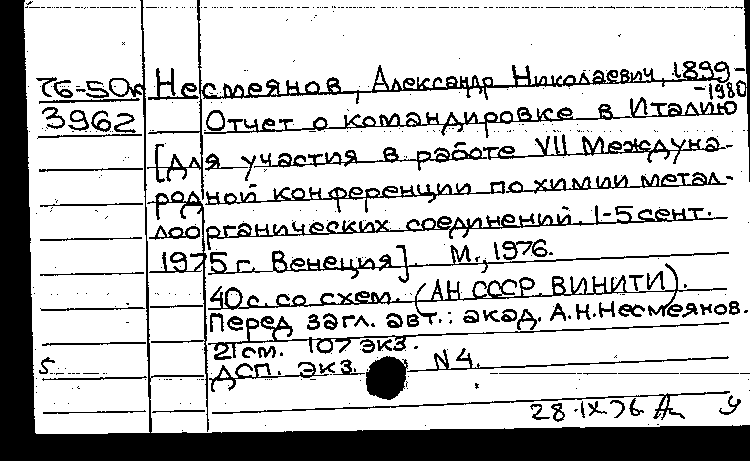 76-50к Несмеянов, Александр Николаевич, 1899-
-1980
3962 Отчет о командировке в Италию
[для участия в работе VII Междуна-
родной конференции по химии метал-
лоорганических соединений. 1-5 сент.
1975 г. Венеция]. М., 1976.
40 с. со схем. (АН СССР. ВИНИТИ).
Перед загл. авт.: акад. А.Н.Несмеянов.
21 см. 107 экз.
ДСП. Экз. N 4.
28.IX.76